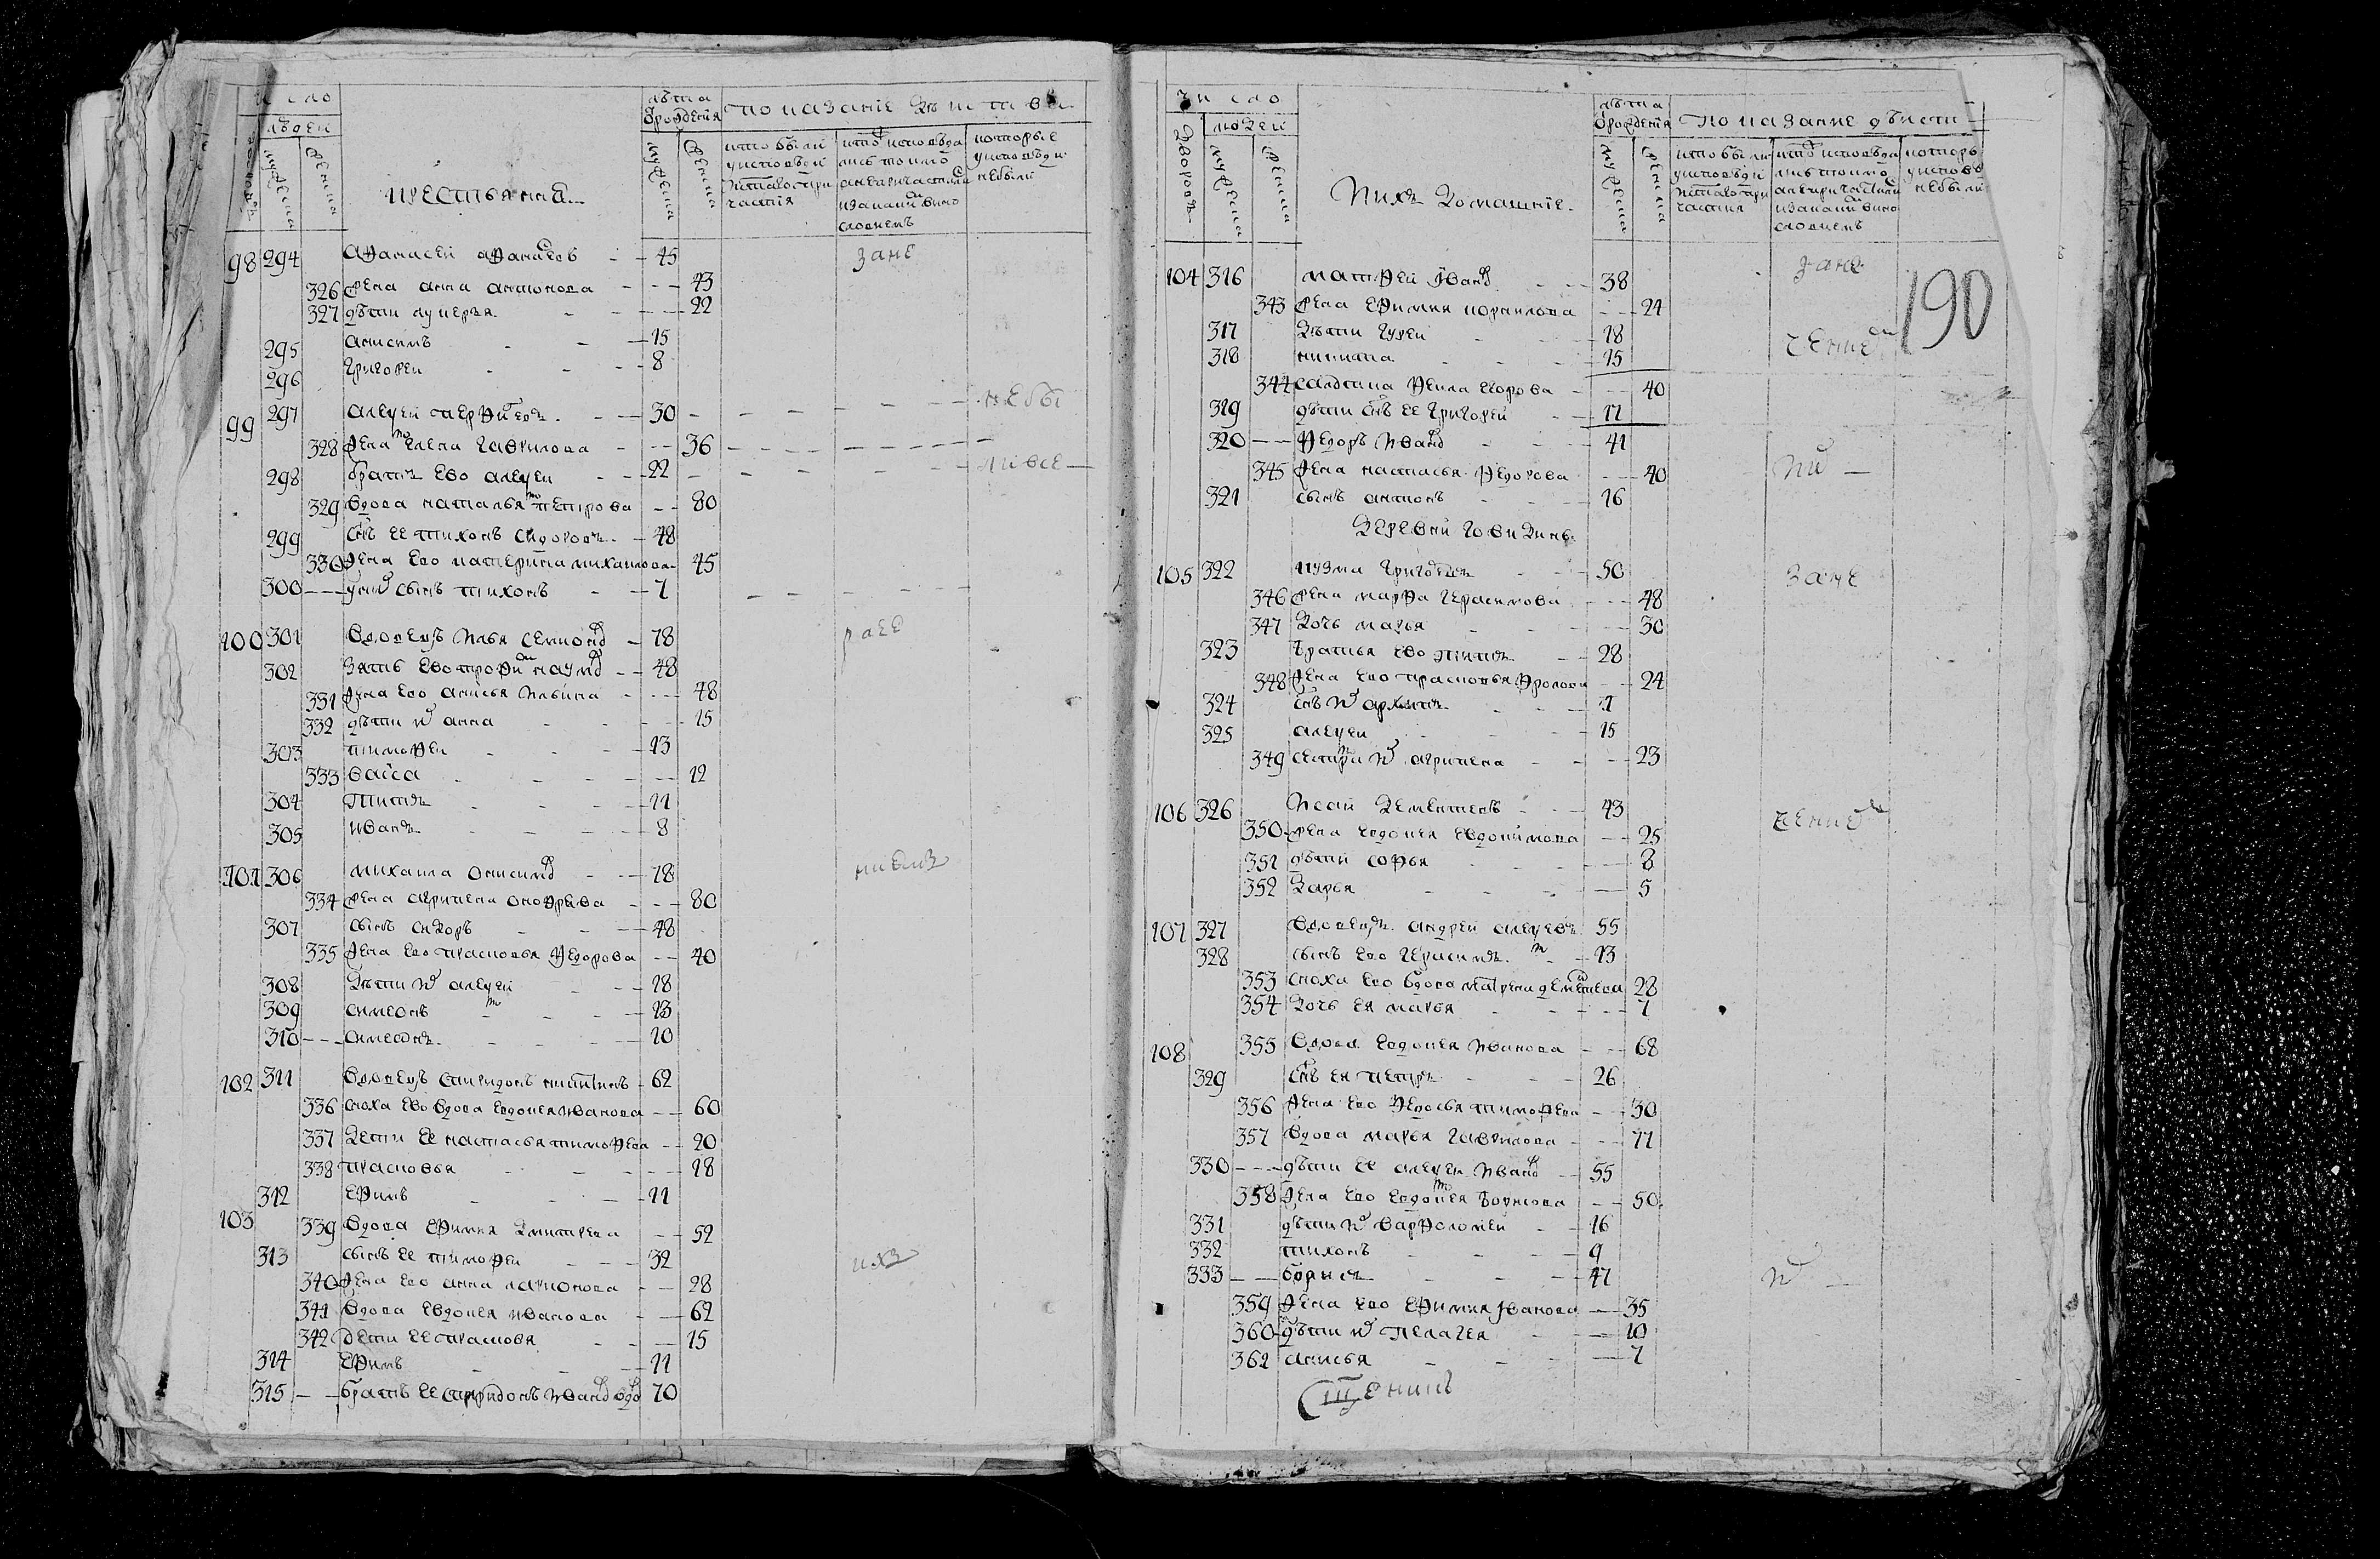 число
людей
лѣта ѿ рождения
показание дѣиства
мужеска
женска
крестьянска
мужеска
женска
кто были у исповѣди и с̃таго причастия
кто исповѣдались токмо а не причастились и за какимъ винословиемъ
которые у исповѣди не были
98 294 Афанасеи Афанасевъ 45 зане
326 жена Анна Антонова 43
327 дѣти Лукерья 22
295 Анисимъ 15
296 Григореи 8
99 297 Алеѯеи Перфилевъ 30 не бы
328 жена Елена Гаврилова 36
298 братъ ево Алеѯеи 22 ли все
329 вдова Наталья Петрова 80
299 сн̃ъ ее Тихонъ Сидоровъ 48
330 жена ево Катерина Михаилова 45
300 у них сынъ Тихонъ 7
100 301 вдовецъ Илья Семионов 78 раее
302 зять ево Трофим Наумов 48
331 жена ево Анисья Ильина 48
332 дѣти их Анна 15
303 Тимофеи 13
333 Васса 12
304 Титъ 11
305 Иванъ 8
101 306 Михаила Онисимов 78
334 жена Агрипена Онофрѣва 80
307 сынъ Сидоръ 48
335 жена ево Прасковья Федорова 40
308 дѣти их Алеѯеи 18
309 Симеонъ 13
310 Симеонъ 10
102 311 вдовецъ Спиридонъ Никитинъ 62
336 сноха ево вдова Евдокея Иванова 60
337 дети ее Настасья Тимофеева 20
338 Прасковья 18
312 Ефимъ 11
103 339 вдова Ефимия Дмитрева 52
313 сынъ ее Тимофеи 32 их
340 жена ево Анна Ларионова 28
341 вдова Евдокея Иванова 62
342 дети ее Прасковя 15
314 Ефимъ 11
315 братъ ее Спиридонъ Иванов вдов 70
число
дворовъ
людеи
мужеска
женска
и ихъ домашние
лѣта ѿ рождения
мужеска
женска
показание дѣиств
кто были у исповѣди и с̃таго причастия
кто исповѣдались токмо а не причастились и за какимъ винословиемъ
которы у исповѣ не были
190
104 316 Матфеи Иванов 38 зане
343 жена Ефимия Корнилова 24
317 дѣти Гуреи 18
318 Никита 15
344 салдатка Фекла Егорова 40
319 дѣти сн̃ъ ее Григореи 17
320 Федоръ Иванов 41
345 жена Настасья Федорова 40
321 сынъ Антонъ 16
деревни Говидинъ
105 322 Кузма Григоревъ 50 зане
346 жена Марфа Герасимова 48
347 дочь Марья 30
323 братья ево Титъ 28
348 жена ево Прасковья Фролова 24
324 сн̃ъ их Архипъ 7
325 Алеѯеи 15
349 сестра их Агрипена 23
106 326 Исаи Дементевъ 43
350 жена Евдокея Евдокимова 25
351 дѣти Софья 8
352 Дарья 5
107 327 вдовецъ Андреи Алеѯеевъ 55
328 сынъ ево Герасимъ 13
353 сноха ево вдова Матрена Дементева 28
354 дочь ея Марья 7
108 355 вдова Евдокея Иванова 68
329 сн̃ъ ея Петръ 26
356 жена ево Федосья Тимофеева 30
357 вдова Марья Гаврилова 77
330 дѣти ее Алеѯеи Иванов 55
358 жена ево Евдокея Борисова 50
331 дѣти их Варфоломеи 16
332 Тихонъ 9
333 Борисъ 47 их
359 жена ево Ефимия Иванова 35
360 дѣти их Пелагея 10
362 Анисья 7